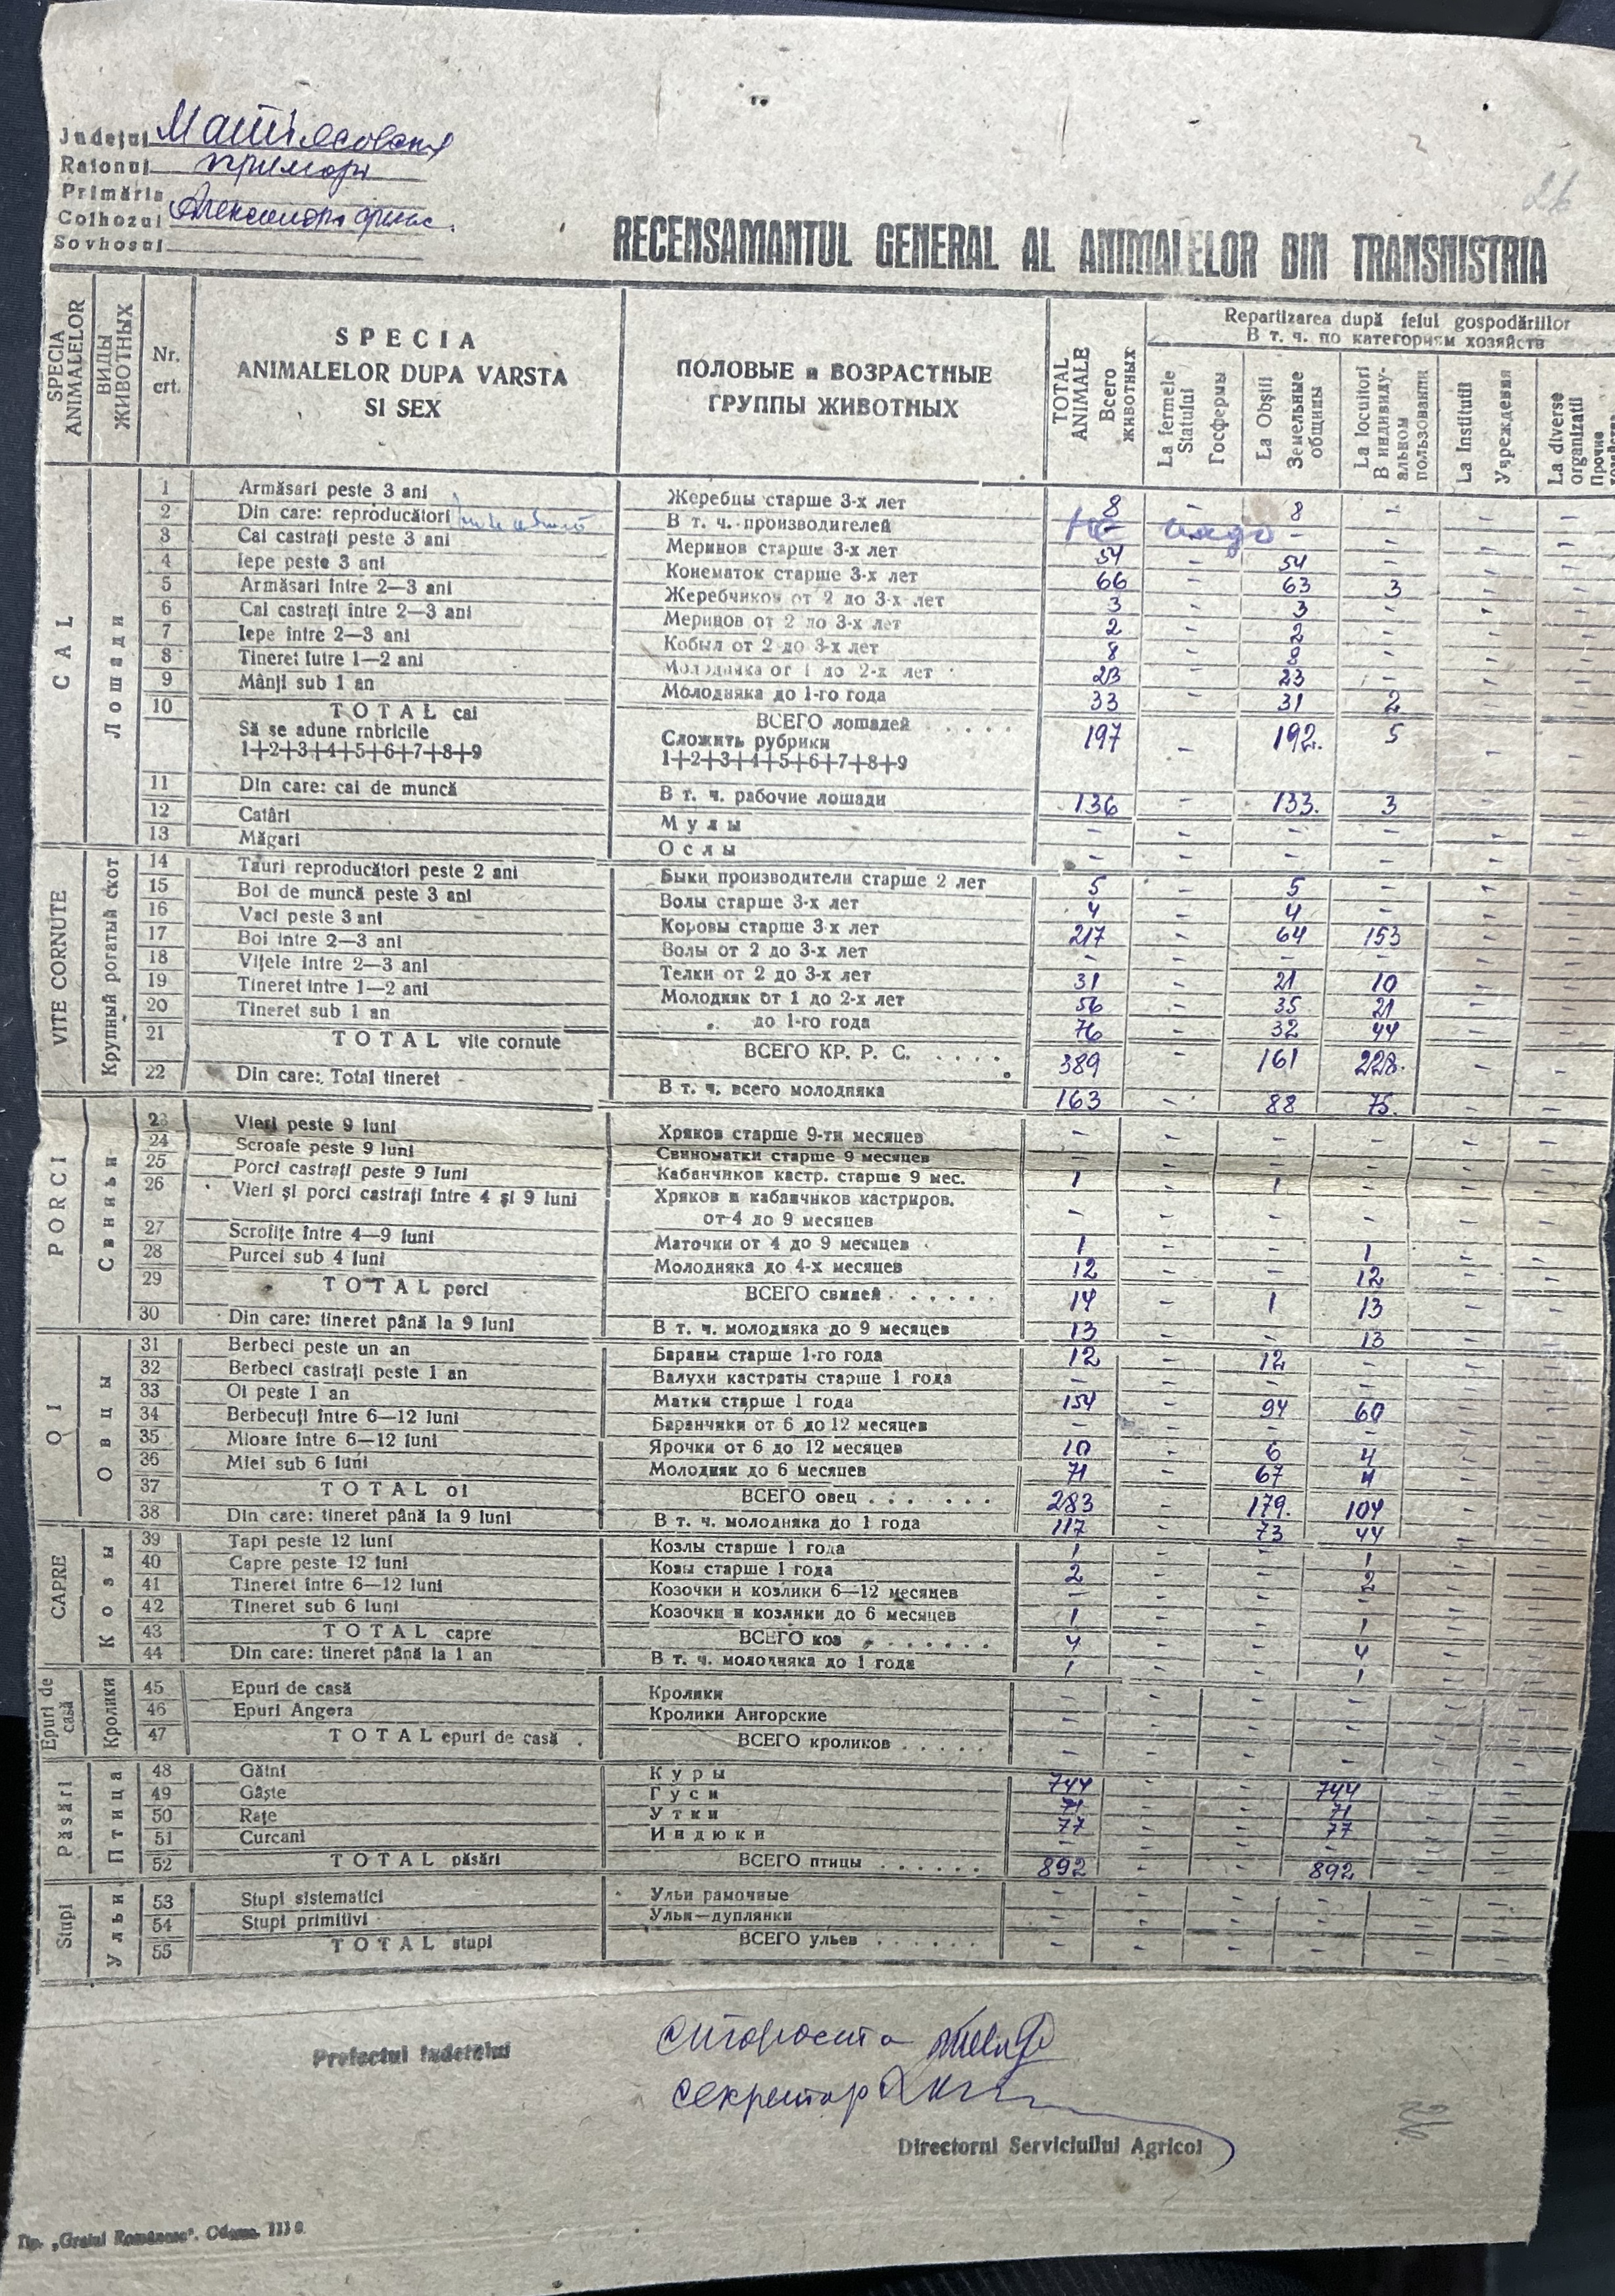 26
Județul
Raionul
Primăria
Colhozul
Sovhosul
RECENSAMANTUL GENERAL AL ANIMALELOR DIN TRANSNISTRIA
SPECIA ANIMALELOR ВИДЫ ЖИВОТНЫХ Nr. crt. SPECIA ANIMALELOR DUPA VARSTA SI SEX ПОЛОВЫЕ и ВОЗРАСТНЫЕ ГРУППЫ ЖИВОТНЫХ TOTAL ANIMALE Всего животных
Repartizarea după felul gospodăriilor
В т. ч. по категориям хозяйств
La fermele Statului Госфермы La Obștii Земельные общины La locuitori В индивидуальном пользовании La Institutii Учреждения La diverse organizatii Прочие
CAL Лошади
1 Armăsari peste 3 ani Жеребцы старше 3-х лет 8 - 8 - - -
2 Din care: reproducători В т. ч. производителей не надо - - - -
3 Cai castrați peste 3 ani Меринов старше 3-х лет 54 - 54 - - -
4 Iepe peste 3 ani Конематок старше 3-х лет 66 - 63 3 - -
5 Armăsari între 2—3 ani Жеребчиков от 2 до 3-х лет 3 - 3 - - -
6 Cai castrați între 2—3 ani Мерицов от 2 до 3-х лет 2 - 2 - - -
7 Iepe între 2—3 ani Кобыл от 2 до 3-х лет 8 - 8 - - -
8 Tineret iutre 1—2 ani Молодняка от 1 до 2-х лет 23 - 23 - - -
9 Mânji sub 1 an Молодняка до 1-го года 33 - 31 2 - -
10 TOTAL cai ВСЕГО лошадей . . . . .
Să se adune rnbricile Сложить рубрики 197 - 192. 5 - -
1+2+3+4+5+6+7+8+9 1+2+3+4+5+6+7+8+9
11 Din care: cai de muncă В т. ч. рабочие лошади 136 - 133. 3 - -
12 Catâri Мулы - - - - - -
13 Măgari Ослы - - - - - -
VITE CORNUTE Крупный рогатый скот
14 Tauri reproducători peste 2 ani Быки производители старше 2 лет 5 - 5 - - -
15 Boi de muncă peste 3 ani Волы старше 3-х лет 4 - 4 - - -
16 Vaci peste 3 ani Коровы старше 3-х лет 217 - 64 153 - -
17 Boi intre 2—3 ani Волы от 2 до 3-х лет - - - - - -
18 Vițele intre 2—3 ani Телки от 2 до 3-х лет 31 - 21 10 - -
19 Tineret intre 1—2 ani Молодняк от 1 до 2-х лет 56 - 35 21 - -
20 Tineret sub 1 an „ до 1-го года 76 - 32 44 - -
21 TOTAL vite cornute ВСЕГО КР. Р. С. . . . . 389 - 161 228. - -
22 Din care: Total tineret В т. ч. всего молодняка 163 - 88 75. - -
PORCI Свиньи
23 Vieri peste 9 luni Хряков старше 9-ти месяцев - - - - - -
24 Scroafe peste 9 luni Свиноматки старше 9 месяцев - - - - - -
25 Porci castrați peste 9 luni Кабанчиков кастр. старше 9 мес. 1 - 1 - - -
26 Vieri și porci castrați între 4 și 9 luni Хряков и кабанчиков кастриров.
от 4 до 9 месяцев - - - - - -
27 Scrofițe între 4—9 luni Маточки от 4 до 9 месяцев 1 - - 1 - -
28 Purcei sub 4 luni Молодняка до 4-х месяцев 12 - - 12 - -
29 TOTAL porci ВСЕГО свиней . . . . . . 14 - 1 13 - -
30 Din care: tineret până la 9 luni В т. ч. молодняка до 9 месяцев 13 - - 13 - -
OI Овцы
31 Berbeci peste un an Бараны старше 1-го года 12 - 12 - - -
32 Berbeci castrați peste 1 an Валухи кастраты старше 1 года - - - - - -
33 Oi peste 1 an Матки старше 1 года 154 - 94 60 - -
34 Berbecuți între 6—12 luni Баранчики от 6 до 12 месяцев - - - - - -
35 Mioare între 6—12 luni Ярочки от 6 до 12 месяцев 10 - 6 4 - -
36 Miei sub 6 luni Молодняк до 6 месяцев 71 - 67 4 - -
37 TOTAL oi ВСЕГО овец . . . . . . . 283 - 179. 104 - -
38 Din care: tineret până la 9 luni В т. ч. молодняка до 1 года 117 - 73 44 - -
CAPRE Козы
39 Tapi peste 12 luni Козлы старше 1 года 1 - - 1 - -
40 Capre peste 12 luni Козы старше 1 года 2 - - 2 - -
41 Tineret între 6—12 luni Козочки и козлики 6—12 месяцев - - - - - -
42 Tineret sub 6 luni Козочки и козлики до 6 месяцев 1 - - 1 - -
43 TOTAL capre ВСЕГО коз . . . . . . . 4 - - 4 - -
44 Din care: tineret până la 1 an В т. ч. молодняка до 1 года 1 - - 1 - -
Epuri de casă Кролики
45 Epuri de casă Кролики - - - - - -
46 Epuri Angora Кролики Ангорские - - - - - -
47 TOTAL epuri de casă . ВСЕГО кроликов . . . . . - - - - - -
Păsări Птица
48 Găini Куры 744 - - 744 - -
49 Gâște Гуси 71 - - 71 - -
50 Rațe Утки 77 - - 77 - -
51 Curcani Индюки - - - - - -
52 TOTAL păsări ВСЕГО птицы . . . . . . 892 - - 892 - -
Stupi Ульи
53 Stupi sistematici Ульи рамочные - - - - - -
54 Stupi primitivi Ульи—дуплянки - - - - - -
55 TOTAL stupi ВСЕГО ульев . . . . . . - - - - - -
Староста
Prefectul Județului
Секретар
Directorul Serviciului Agricol
Tip. „Graiul Românesc". Odessa.